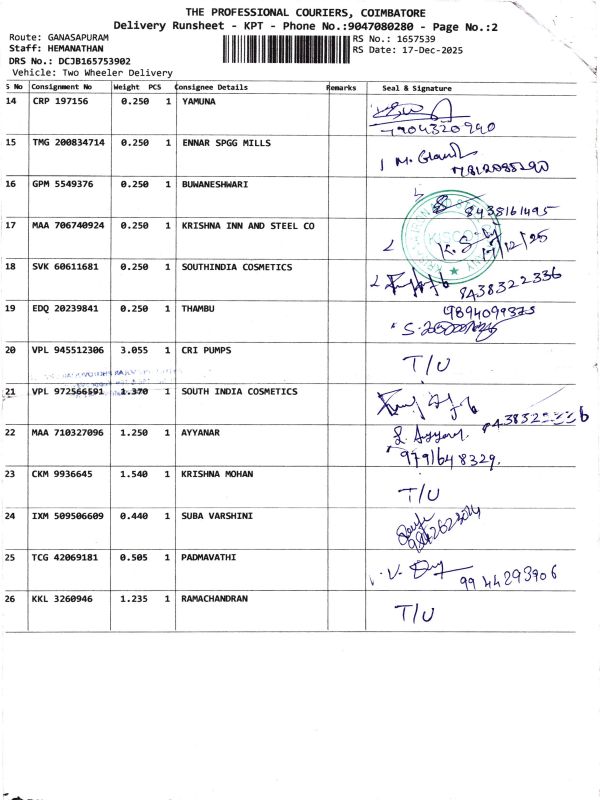 THE PROFESSIONAL COURIERS, COIMBATORE
Delivery Runsheet - KPT - Phone No.:9047080280 - Page No.:2
Route: GANASAPURAM
RS No.: 1657539
Staff: HEMANATHAN
RS Date: 17-Dec-2025
DRS No.: DCJB165753902
Vehicle: Two Wheeler Delivery
S No Consignment No Weight PCS Consignee Details Remarks Seal & Signature
14 CRP 197156 0.250 1 YAMUNA
7904320940
15 TMG 200834714 0.250 1 ENNAR SPGG MILLS
16 GPM 5549376 0.250 1 BUWANESHWARI
8438161495
17 MAA 706740924 0.250 1 KRISHNA INN AND STEEL CO
17/12/25
18 SVK 60611681 0.250 1 SOUTHINDIA COSMETICS
8438322336
19 EDQ 20239841 0.250 1 THAMBU
20 VPL 945512306 3.055 1 CRI PUMPS T/U
21 VPL 972566591 1.370 1 SOUTH INDIA COSMETICS
22 MAA 710327096 1.250 1 AYYANAR
9791648329.
23 CKM 9936645 1.540 1 KRISHNA MOHAN T/U
24 IXM 509506609 0.440 1 SUBA VARSHINI
25 TCG 42069181 0.505 1 PADMAVATHI
9944293906
26 KKL 3260946 1.235 1 RAMACHANDRAN T/U